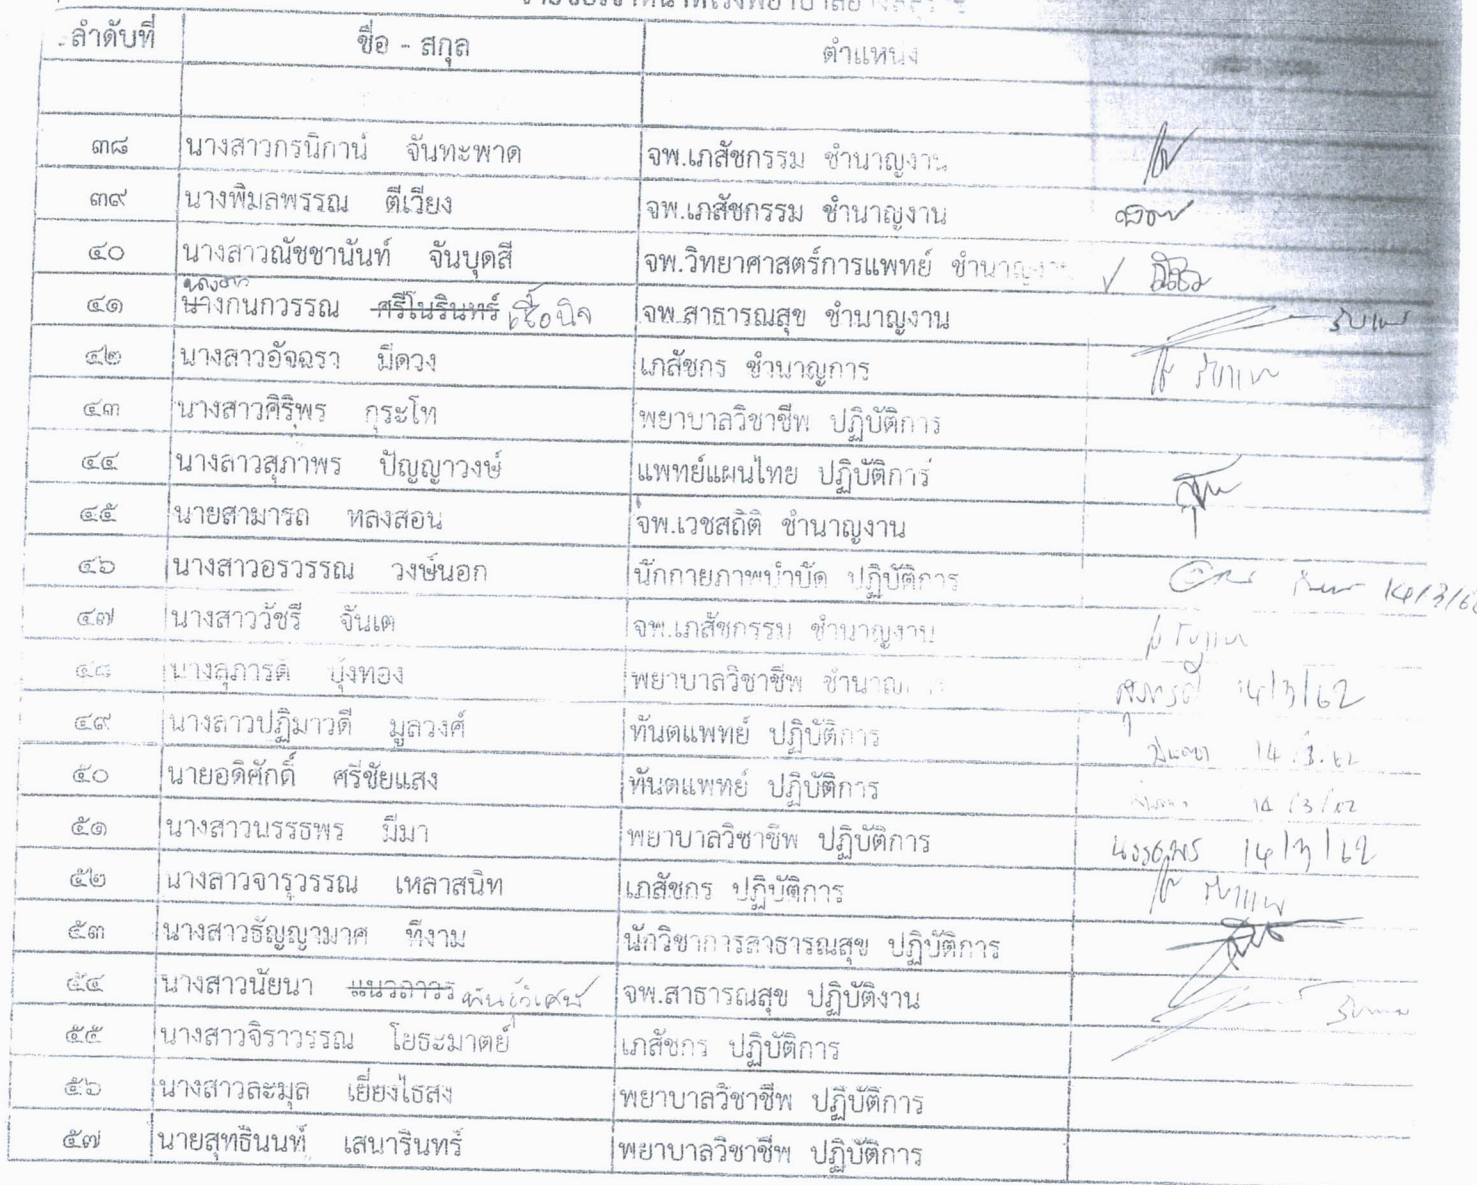 ลำดับที่ ชื่อ - สกุล ตำแหน่ง
๓๘ นางสาวกรนิกาน์ จันทะพาด จพ.เภสัชกรรม ชำนาญงาน
๓๙ นางพิมลพรรณ ตีเวียง จพ.เภสัชกรรม ชำนาญงาน
๔๐ นางสาวณัชชานันท์ จันบุดสี จพ.วิทยาศาสตร์การแพทย์ ชำนาญงาน
นางสาว
๔๑ นางกนกวรรณ ศรีโนรินทร์ เชื้อนิจ จพ.สาธารณสุข ชำนาญงาน รับแทน
๔๒ นางสาวอัจฉรา มีดวง เภสัชกร ชำนาญการ รับแทน
๔๓ นางสาวศิริพร กุระโท พยาบาลวิชาชีพ ปฏิบัติการ
๔๔ นางสาวสุภาพร ปัญญาวงษ์ แพทย์แผนไทย ปฏิบัติการ
๔๕ นายสามารถ หลงสอน จพ.เวชสถิติ ชำนาญงาน
๔๖ นางสาวอรวรรณ วงษ์นอก นักกายภาพบำบัด ปฏิบัติการ
๔๗ นางสาววัชรี จันเต จพ.เภสัชกรรม ชำนาญงาน รับแทน
๔๘ นางสุภารดี บุ้งทอง พยาบาลวิชาชีพ สุภารดี 14/3/62
๔๙ นางสาวปฏิมาวดี มูลวงศ์ ทันตแพทย์ ปฏิบัติการ 14.3.62
๕๐ นายอดิศักดิ์ ศรีชัยแสง ทันตแพทย์ ปฏิบัติการ 14/3/62
๕๑ นางสาวนรรธพร มีมา พยาบาลวิชาชีพ ปฏิบัติการ นรรธพร 14/3/62
๕๒ นางสาวจารุวรรณ เหลาสนิท เภสัชกร ปฏิบัติการ รับแทน
๕๓ นางสาวธัญญามาศ ทีงาม นักวิชาการสาธารณสุข ปฏิบัติการ
๕๔ นางสาวนัยนา แนวถาวร จพ.สาธารณสุข ปฏิบัติงาน รับแทน
๕๕ นางสาวจิราวรรณ โยธะมาตย์ เภสัชกร ปฏิบัติการ
๕๖ นางสาวละมุล เยี่ยงไธสง พยาบาลวิชาชีพ ปฏิบัติการ
๕๗ นายสุทธินนท์ เสนารินทร์ พยาบาลวิชาชีพ ปฏิบัติการ